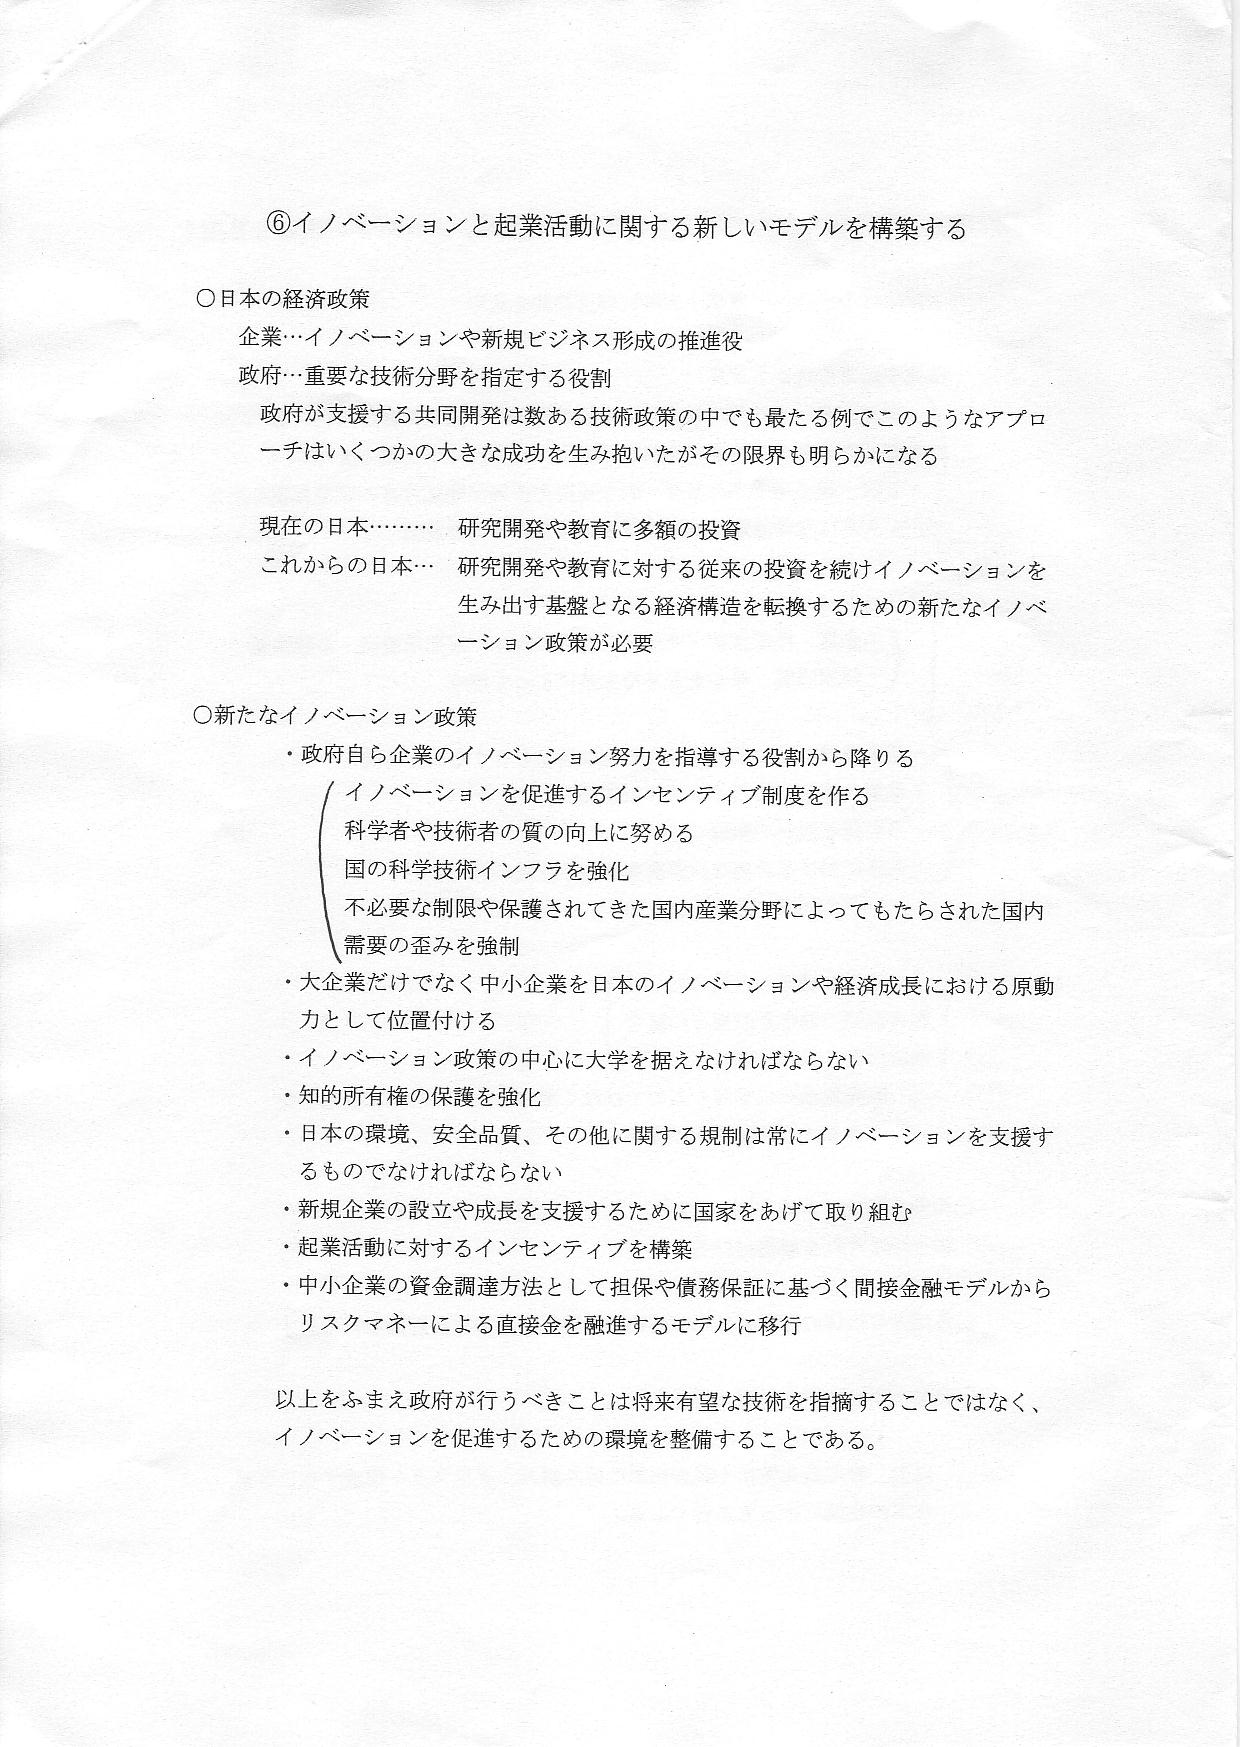 ⑥イノベーションと起業活動に関する新しいモデルを構築する
〇日本の経済政策
企業…イノベーションや新規ビジネス形成の推進役
政府…重要な技術分野を指定する役割
政府が支援する共同開発は数ある技術政策の中でも最たる例でこのようなアプロ
ーチはいくつかの大きな成功を生み抱いたがその限界も明らかになる
現在の日本………　研究開発や教育に多額の投資
これからの日本…　研究開発や教育に対する従来の投資を続けイノベーションを
生み出す基盤となる経済構造を転換するための新たなイノベ
ーション政策が必要
〇新たなイノベーション政策
・政府自ら企業のイノベーション努力を指導する役割から降りる
イノベーションを促進するインセンティブ制度を作る
科学者や技術者の質の向上に努める
国の科学技術インフラを強化
不必要な制限や保護されてきた国内産業分野によってもたらされた国内
需要の歪みを強制
・大企業だけでなく中小企業を日本のイノベーションや経済成長における原動
力として位置付ける
・イノベーション政策の中心に大学を据えなければならない
・知的所有権の保護を強化
・日本の環境、安全品質、その他に関する規制は常にイノベーションを支援す
るものでなければならない
・新規企業の設立や成長を支援するために国家をあげて取り組む
・起業活動に対するインセンティブを構築
・中小企業の資金調達方法として担保や債務保証に基づく間接金融モデルから
リスクマネーによる直接金を融進するモデルに移行
以上をふまえ政府が行うべきことは将来有望な技術を指摘することではなく、
イノベーションを促進するための環境を整備することである。